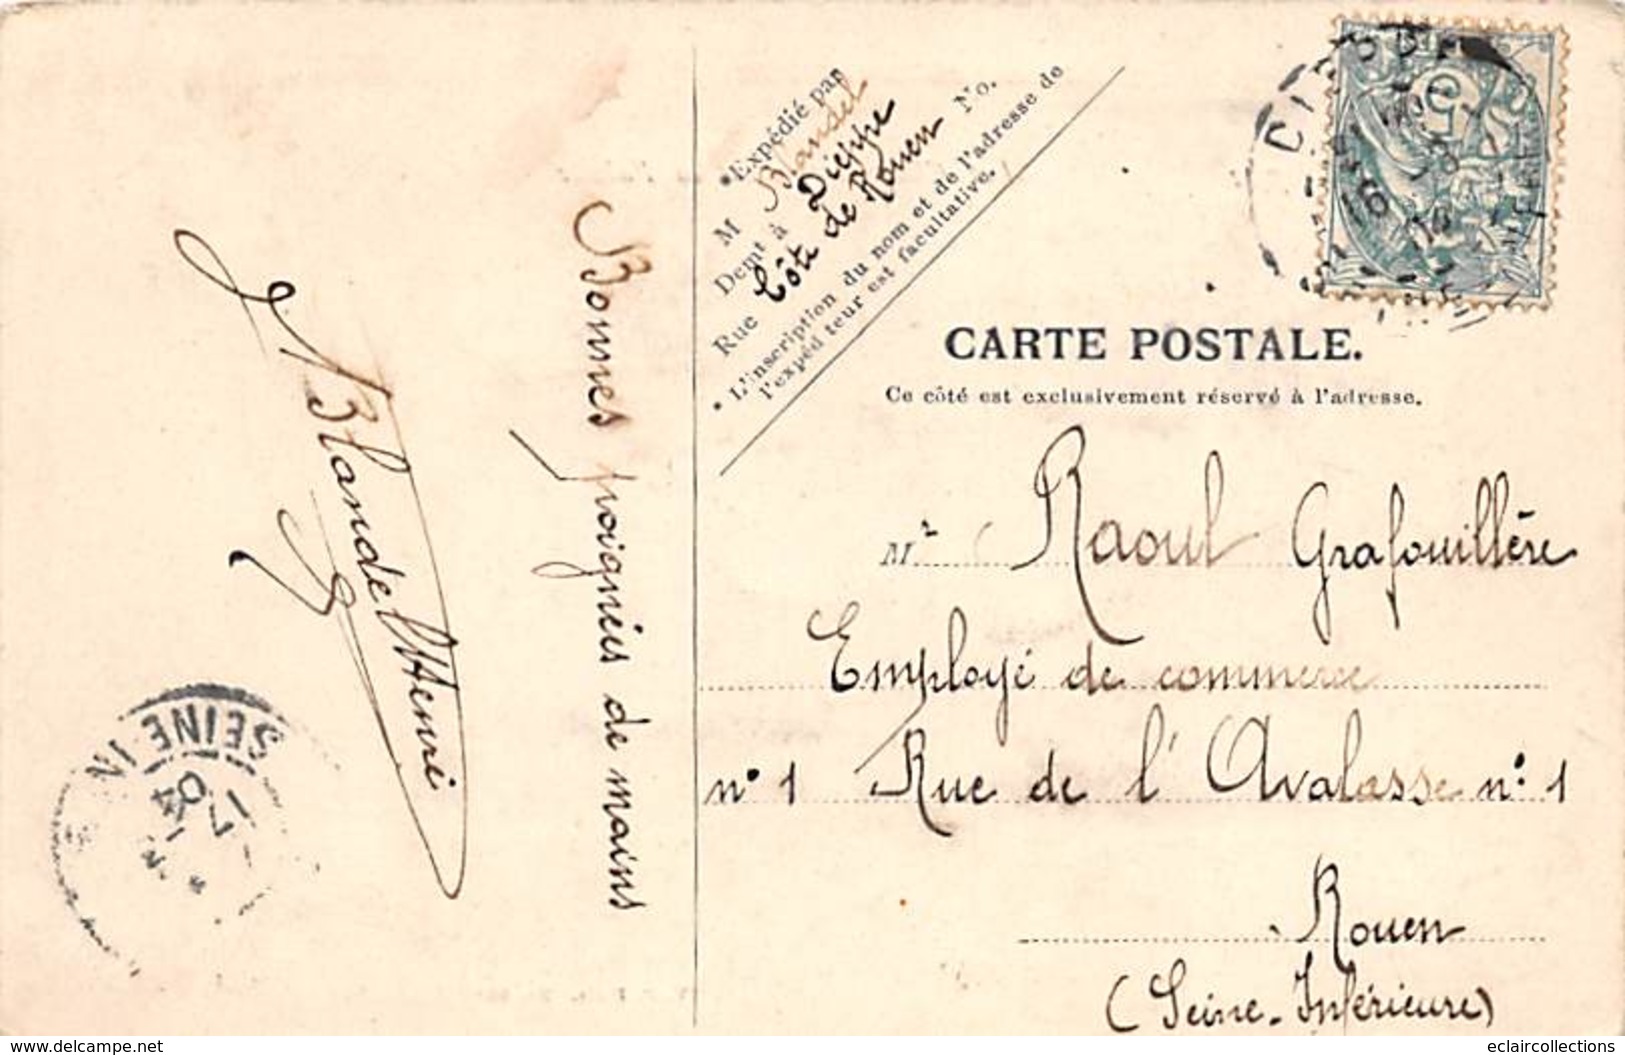 CARTE POSTALE.
Ce côté est exclusivement réservé à l'adresse.
*Expédié par
M Blansel
Demt à Dieppe
Rue Côte de Rouen No.
* L'inscription du nom et de l'adresse de
l'expéd teur est facultative.
Mr Raoul Grafouillère
Employé de commerce
n° 1 Rue de l'Avalasse n° 1
Rouen
(Seine-Inférieure)
Bonnes poignées de mains
Henri
5
16
SEINE IN
17
04
www.delcampe.net
eclaircollections